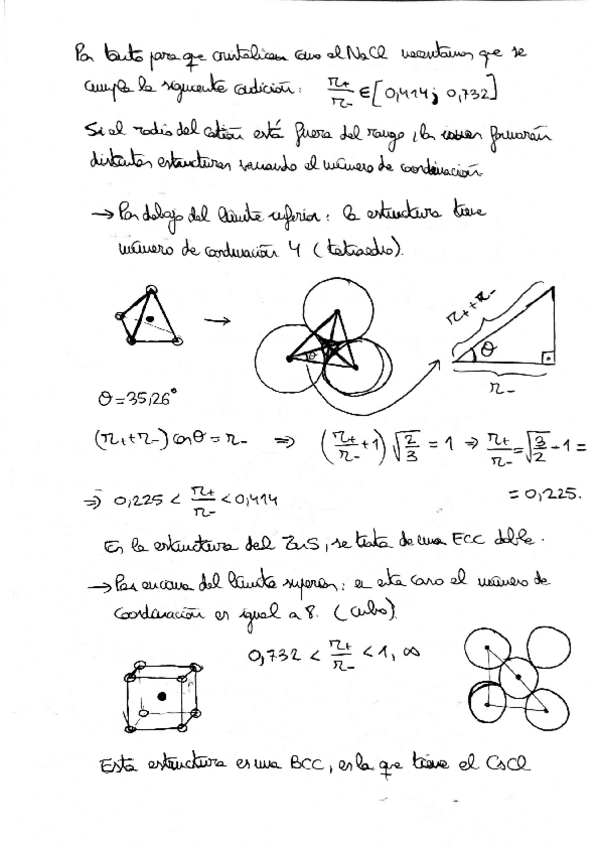 Por tanto para que cristalicen como el NaCl necesitamos que se
cumpla la siguiente condición: r+/r- ∈ [0,414; 0,732]
Si el radio del catión está fuera del rango, los iones formarán
distintas estructuras variando el número de coordinación
→ Por debajo del límite inferior: la estructura tiene
número de coordinación 4 (tetraedro).
→ θ r+ + r- θ r-
θ = 35,26°
(r+ + r-) cos θ = r- ⇒ (r+/r- + 1) √(2/3) = 1 ⇒ r+/r- = √(3/2) - 1 =
⇒ 0,225 < r+/r- < 0,414 = 0,225.
En la estructura del ZnS, se trata de una ECC doble.
→ Por encima del límite superior: en este caso el número de
coordinación es igual a 8. (cubo).
0,732 < r+/r- < 1, ∞
Esta estructura es una BCC, es la que tiene el CsCl